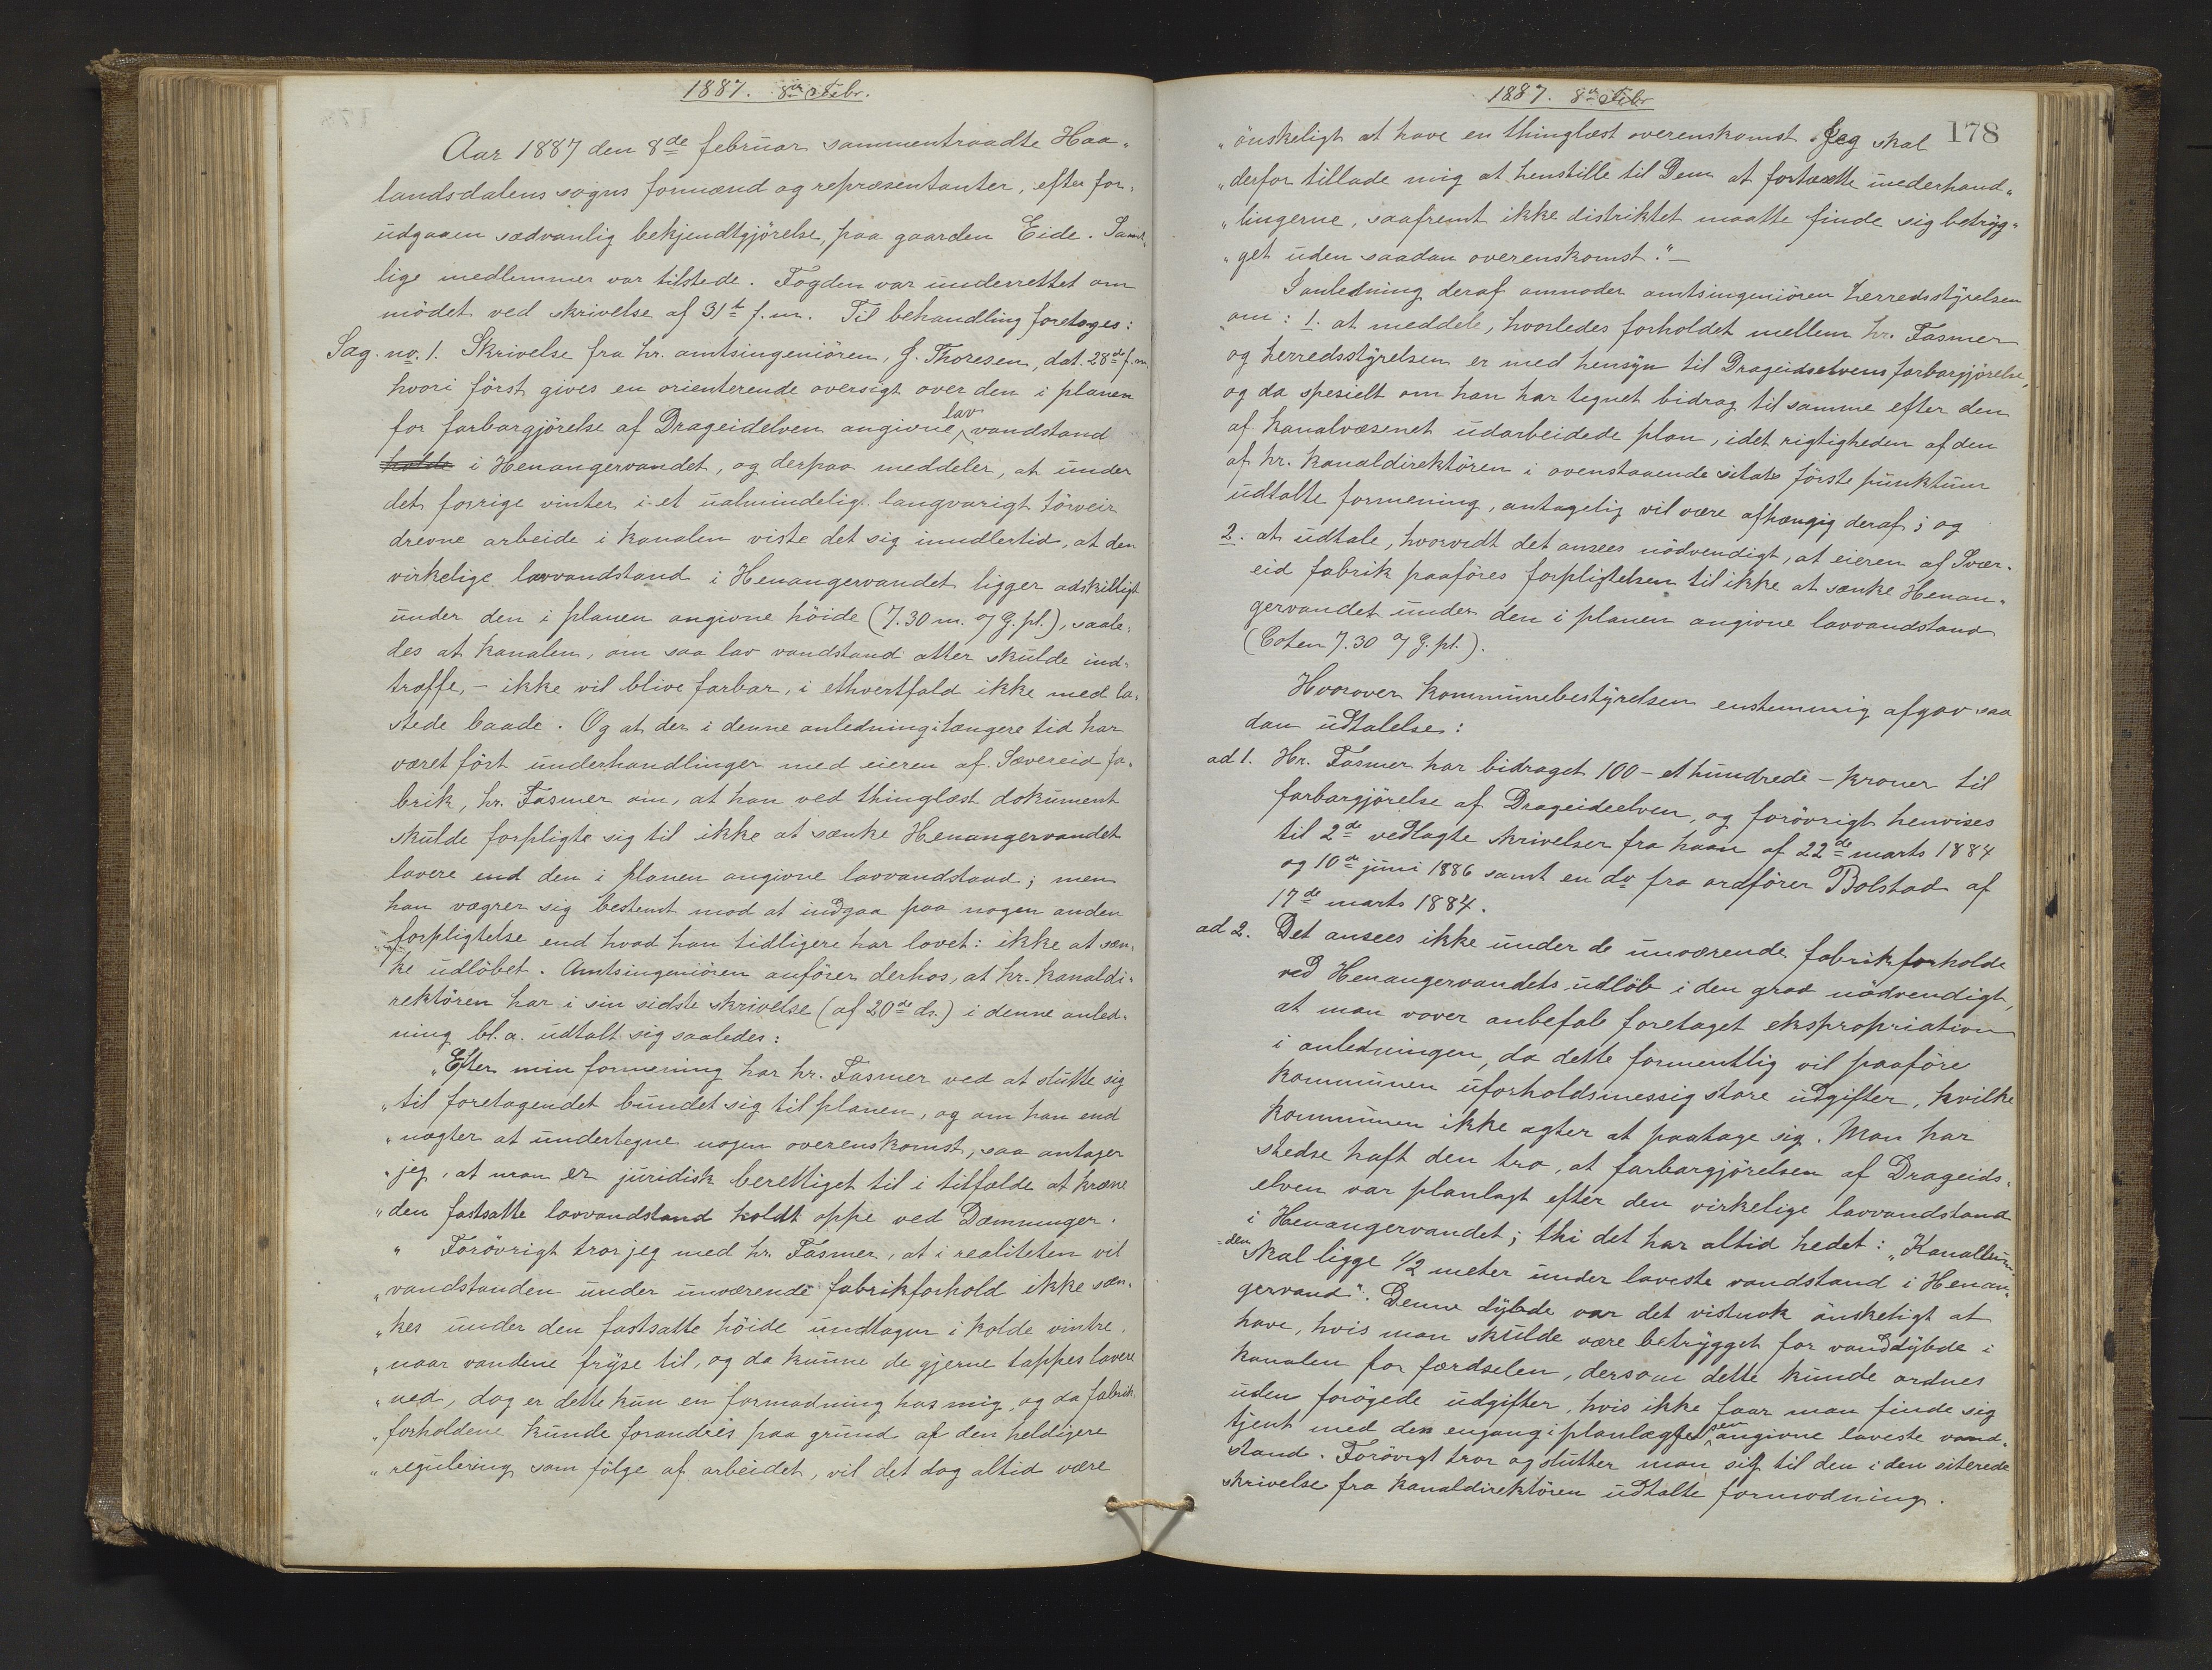 1887. 8de Febr.
Aar 1887 den 8de februar sammentraadte Haa-
landsdalens sogns formænd og repræsentanter, efter for-
udgaaen sædvanlig bekjendtgjörelse, paa gaarden Eide. Samt-
lige medlemmer var tilstede. Fogden var underrettet om
mödet ved skrivelse af 31te f.m. Til behandling foretoges:
Sag. no. 1. Skrivelse fra hr. amtsingeniören, J. Thoresen, dat. 28de f.m.
hvori först gives en orienterende oversigt over den i planen
for farbargjörelse af Drageidelven angivne lav vandstand
holde i Henangervandet, og derpaa meddeler, at under
det forrige vinter i et ualmindeligt langvarigt törveir
drevne arbeide i kanalen viste det sig imidlertid, at den
virkelige lavvandstand i Henangervandet ligger adskilligt
under den i planen angivne höide (7.30 m. o/ G. pl.), saale-
des at kanalen, om saa lav vandstand atter skulde ind-
træffe, – ikke vil blive farbar, i ethvertfald ikke med la-
stede baade. Og at der i denne anledning i længere tid har
været fört underhandlinger med eieren af Sævereid fa-
brik, hr. Fasmer om, at han ved thinglæst dokument
skulde forpligte sig til ikke at sænke Henangervandet
lavere end den i planen angivne lavvandstand; men
han vægrer sig bestemt mod at indgaa paa nogen anden
forpligtelse end hvad han tidligere har lovet: ikke at sæn-
ke udlöbet. Amtsingeniören anförer derhos, at hr. kanaldi-
rektören har i sin sidste skrivelse (af 20de ds.) i denne anled-
ning bl. a. udtalt sig saaledes:
"Efter min formening har hr. Fasmer ved at slutte sig
"til foretagendet bundet sig til planen, og om han end
"nægter at undertegne nogen overenskomst, saa antager
"jeg, at man er juridisk berettiget til i tilfælde at kræve
"den fastsatte lavvandstand holdt oppe ved Dæmninger.
" Forövrigt tror jeg med hr. Fasmer, at i realiteten vil
"vandstanden under nuværende fabrikforhold ikke sæn-
"kes under den fastsatte höide undtagen i kolde vintre,
"naar vandene fryse til, og da kunne de gjerne tappes lavere
"ned, dog er dette kun en formodning hos mig, og da fabrik-
"forholdene kunde forandres paa grund af den heldigere
"regulering som fölge af arbeidet, vil det dog altid være
1887. 8de Febr
178
"önskeligt at have en thinglæst overenskomst. Jeg skal
"derfor tillade mig at henstille til Dem at fortsætte underhand-
"lingerne, saafremt ikke distriktet maatte finde sig betryg-
"get uden saadan overenskomst." –
I anledning deraf anmoder amtsingeniören herredsstyrelsen
om: 1. at meddele, hvorledes forholdet mellem hr. Fasmer
og herredsstyrelsen er med hensyn til Drageidselvens farbargjörelse,
og da spesielt om han har tegnet bidrag til samme efter den
af kanalvæsenet udarbeidede plan, idet rigtigheden af den
af hr. kanaldirektören i ovenstaaende sitats förste punktum
udtalte formening, antagelig vil være afhængig deraf; og
2. at udtale, hvorvidt det ansees nödvendigt, at eieren af Svær-
eid fabrik paaföres forpligtelsen til ikke at sænke Henan-
gervandet under den i planen angivne lavvandstand
(Coten 7.30 o/ G. pl.).
Hvorover kommunebestyrelsen enstemmig afgav saa
dan udtalelse:
ad 1. Hr. Fasmer har bidraget 100 – et hundrede – kroner til
farbargjörelse af Drageideelven, og forövrigt henvises
til 2de vedlagte skrivelser fra ham af 22de marts 1884
og 10de juni 1886 samt en do fra ordförer Bolstad af
17de marts 1884.
ad 2. Det ansees ikke under de nuværende fabrikforholde
ved Henangervandets udlöb i den grad nödvendigt,
at man vover anbefale foretaget ekspropriation
i anledningen, da dette formentlig vil paaföre
kommunen uforholdsmessig store udgifter, hvilke
kommunen ikke agter at paatage sig. Man har
stedse haft den tro, at farbargjörelsen af Drageids-
elven var planlagt efter den virkelige lavvandstand
i Henangervandet; thi det har altid hedet: "Kanalbun-
=den skal ligge 1/2 meter under laveste vandstand i Henan-
gervand". Denne dybde var det vistnok önskeligt at
have, hvis man skulde være betrygget for vanddybde i
kanalen for færdselen, dersom dette kunde ordnes
uden forögede udgifter, hvis ikke faar man finde sig
tjent med den engang i planlægget sen angivne laveste vand-
stand. Forövrigt tror og slutter man sig til den i den siterede
skrivelse fra kanaldirektören udtalte formodning.